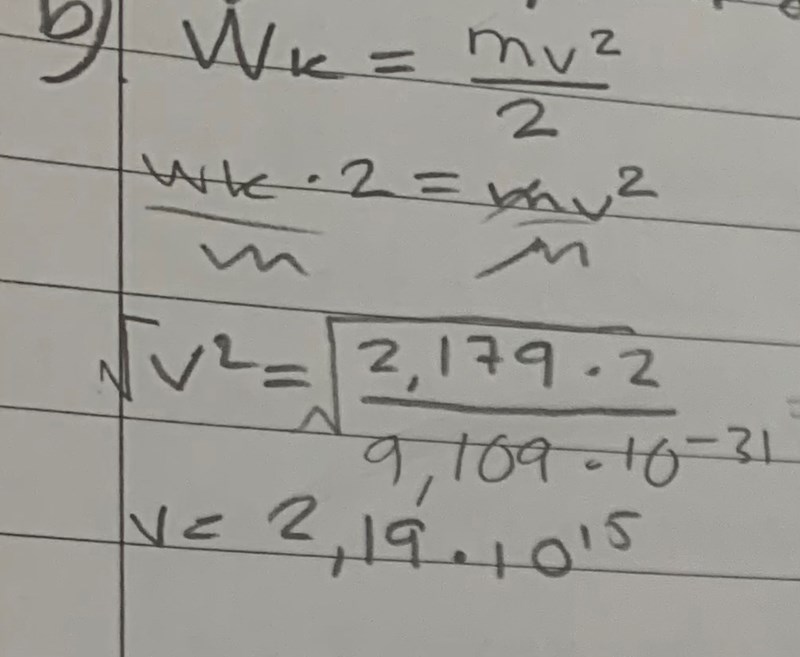 b) Wk = mv²/2
Wk · 2/m = mv²/m
√v² = √(2,179 · 2/9,109 · 10⁻³¹)
v = 2,19 · 10¹⁵